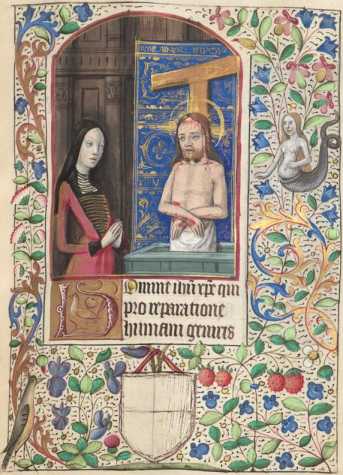 Domine ihū xpē qui
pro reparatione
humani generis